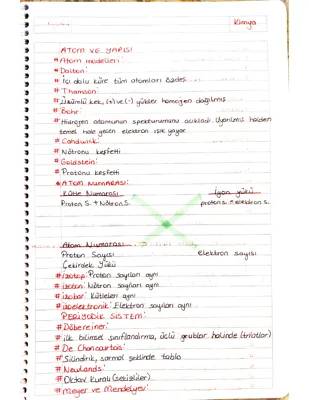 Kimya
ATOM VE YAPISI
*Atom modelleri:
*Dalton:
#İçi dolu küre tüm atomları özdeş
#Thamson:
#Üzümlü kek, (+) ve (-) yükler homojen dağılmış
#Bohr:
#Hidrojen atomunun spekturumunu açıkladı. Uyarılmış halden
temel hale geçen elektron ışık yayar
#Chadwick:
#Nötronu keşfetti
#Goldstein:
#Protonu keşfetti
*ATOM NUMARASI:
Kütle Numarası İyon yükü
Proton S. + Nötron S. proton s. - elektron s.
Atom Numarası
Proton Sayısı elektron sayısı
Çekirdek Yükü
#izotop: Proton sayıları aynı
#izoton: Nötron sayıları aynı
#izobar: Kütleleri aynı
#izoelektronik: Elektron sayıları aynı
PERİYODİK SİSTEM:
#Döbereiner:
#ilk bilimsel sınıflandırma, üçlü gruplar halinde (triatlar)
#De Chancourtois:
#Silindirik, sarmal şeklinde tablo
#Newlands:
#Oktav Kuralı (sekizliler)
#Meyer ve Mendelyev: